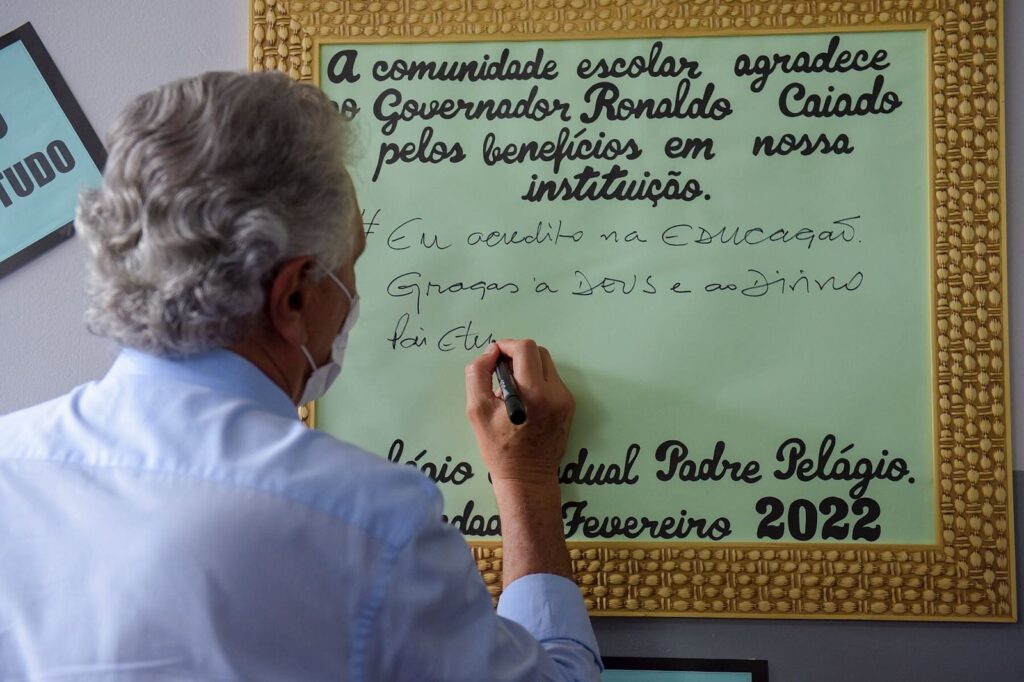 TUDO
A comunidade escolar agradece
ao Governador Ronaldo Caiado
pelos benefícios em nossa
instituição.
# Eu acredito na EDUCAÇÃO.
Graças a DEUS e ao Divino
Pai Ete
Padre Pelágio.
Fevereiro 2022